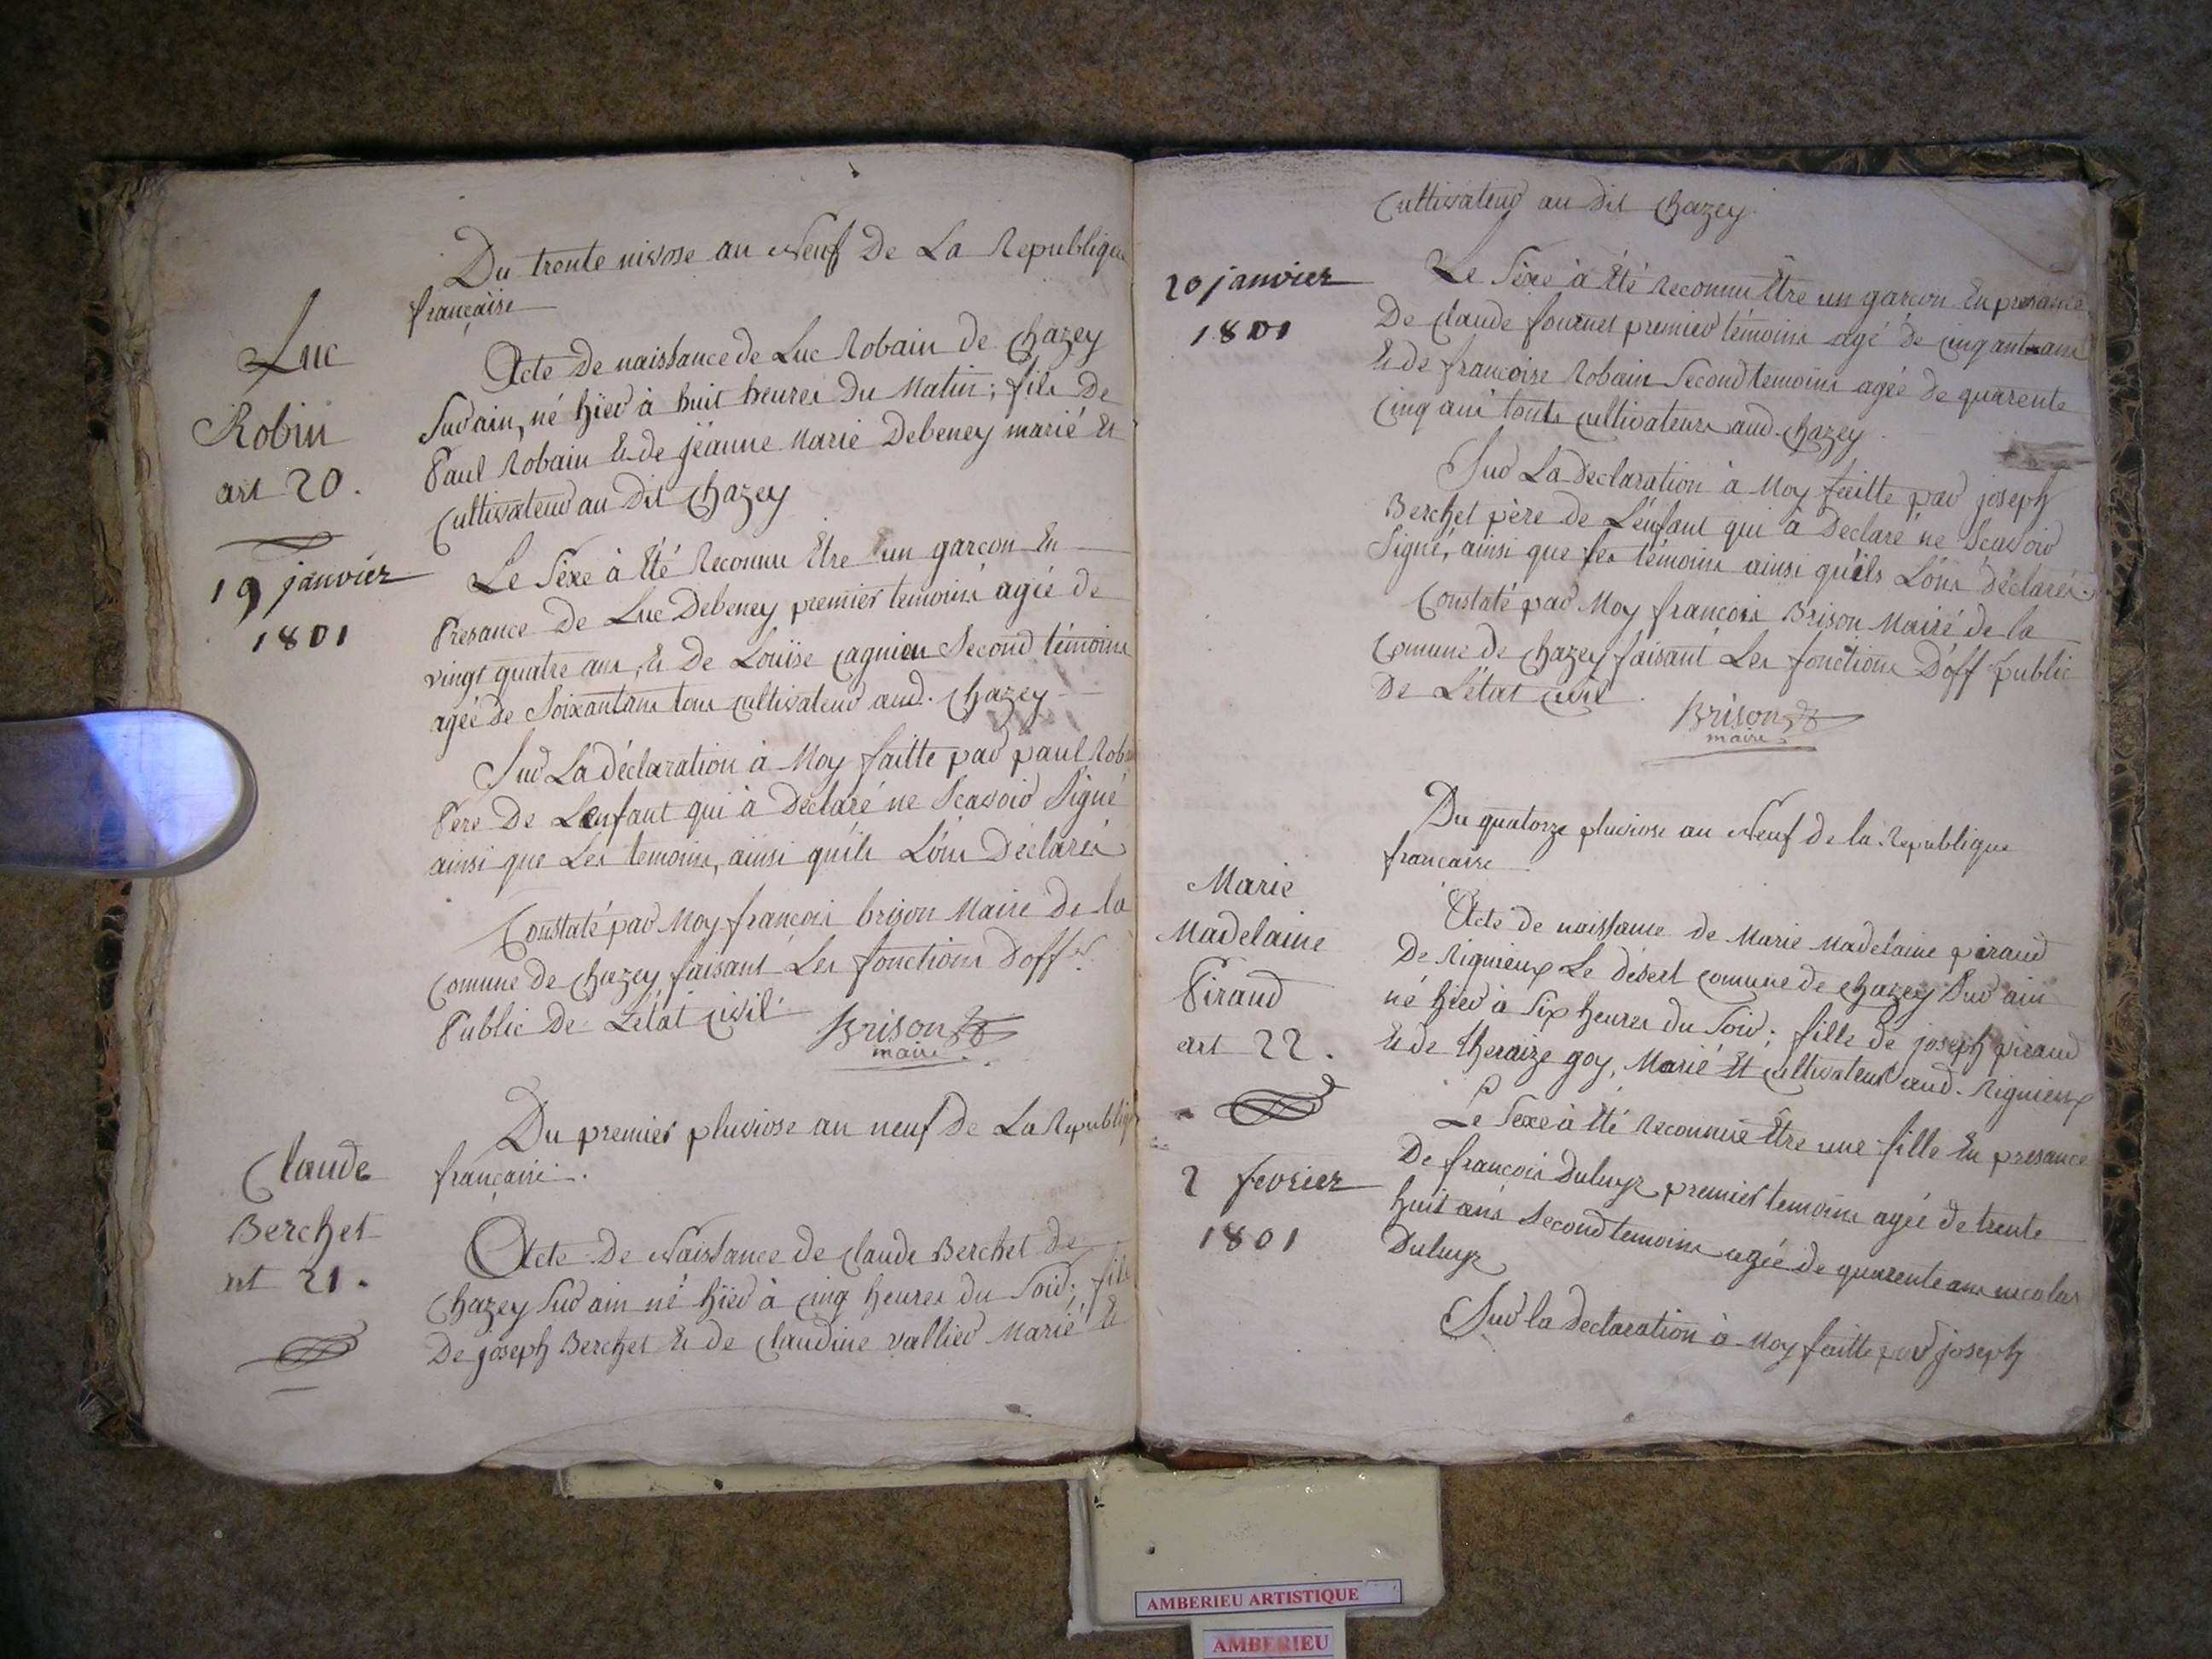 Du trente nivose an Neuf De La Republique
française
Luc
Robin
art 20.
19 janvier
1801
Acte de naissance de Luc Robain de Chazey
Sur ain, né hier à huit heures Du Matin; fils De
Paul Robain & de jëanne Marie Debeney marié &
Cultivateur au Dit Chazey
Le Sèxe à Eté Reconnu Etre un garcon En
Presance De Luc Debeney premier temoins agée de
vingt quatre ans, & De Louïse Cagnien Second témoins
agée de Soixantans tous cultivateur aud. Chazey
Sur La déclaration à Moy faitte par paul Rob
Père De Lenfant qui à Déclaré ne Scavoir Signé
ainsi que Les temoins, ainsi qu'ils L'ons Déclarés
Constaté par Moy françois brison Maire De la
Comune de Chazey faisant Les fonctions Doffer
Public De L'état Civil
Brison
maire
Claude
Berchet
art 21.
Du premier pluviose an neuf De La Republiq
française.
Acte De Naissance de Claude Berchet de
Chazey Sur ain né hier à Cinq heures du Soir; fils
De joseph Berchet & de Claudine vallier Marié &
Cultivateur au dit Chazey
20 janvier
1801
Le Sèxe à Eté Reconnu Être un garcon En presance
De Claude fournet premier témoins agé De Cinquant ans
& de francoise Robain Second temoins agée de quarente
Cinq ans touts cultivateurs aud. Chazey
Sur La Declaration à Moy faitte par joseph
Berchet père de L'enfant qui à Declaré ne Scavoir
Signé, ainsi que les témoins ainsi qu'ils L'ons déclarés.
Constaté par Moy françois Brison Mairé de la
Comune de Chazey faisant Les fonctions D'off public
De L'état Civil
Brison
maire
Du quatorze pluviose an Neuf de la Republique
francaise
Marie
Madelaine
Piraud
art 22.
2 fevrier
1801
Acte de naissance de Marie Madelaine piraud
De Rignieux Le désert Comune de Chazey Sur ain
né hier à Six heures du Soir; fille de joseph piraud
& de theraize goy, Marié Et Cultivateur aud. Rignieux
Le Sexe à Eté Reconnue Être une fille En presance
De françois Duluyz premier temoins agée de trente
huit ans Second temoins agée de quarente ans nicolas
Duluyz
Sur la Declaration à Moy faitte par joseph
AMBERIEU ARTISTIQUE
AMBERIEU